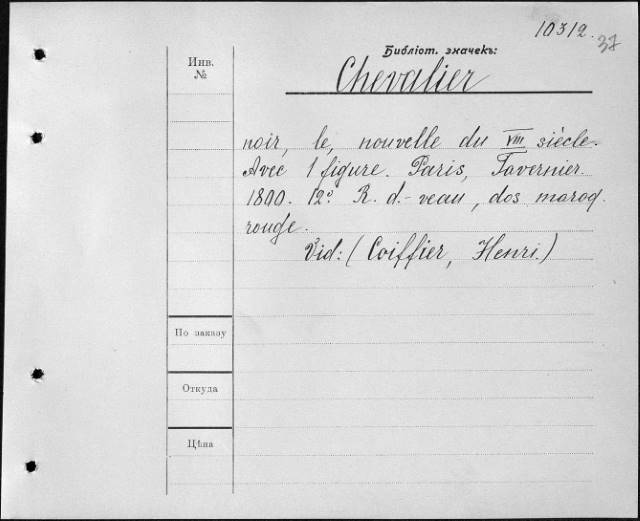 10312.
37
Библіот. значекъ:
Инв.
№
Chevalier
noir, le, nouvelle du VIII siècle.
Avec 1 figure. Paris, Tavernier.
1800. 12º. R. d.-veau, dos maroq.
rouge.
Vid: (Coiffier, Henri.)
По заказу
Откуда
Цѣна